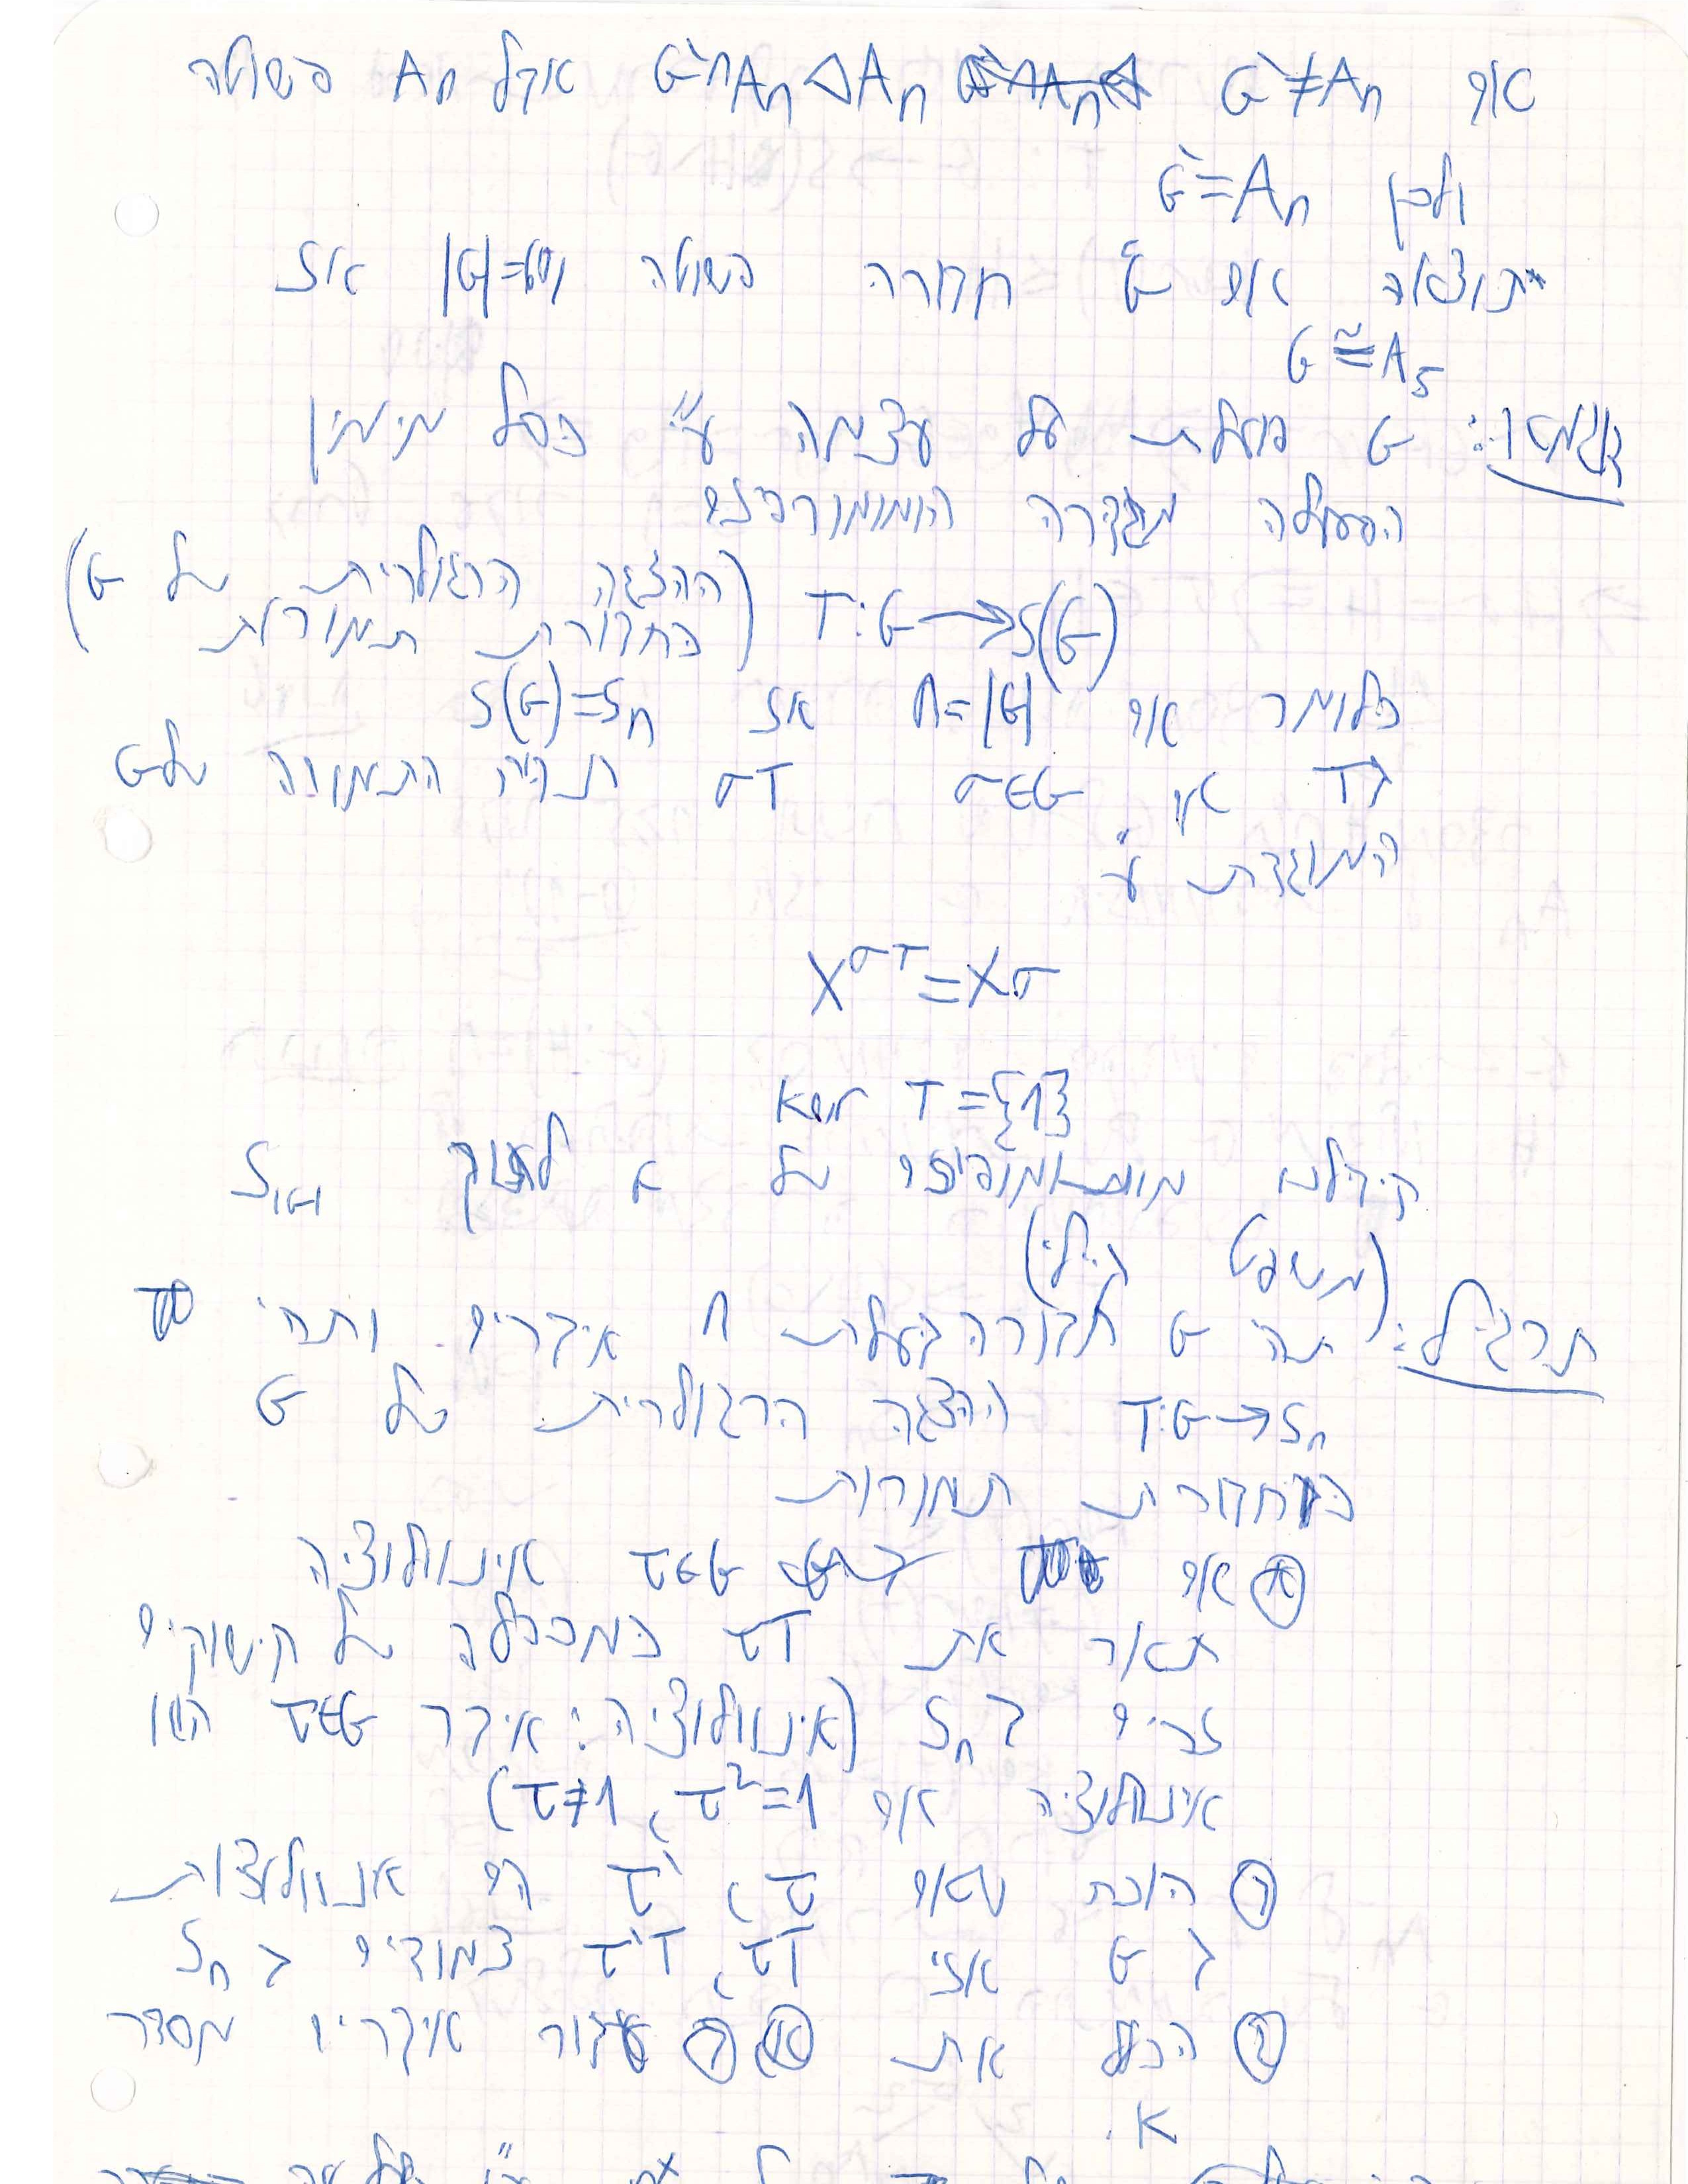 אם G'≠Aₙ G'∩Aₙ △ Aₙ אבל Aₙ פשוטה
ולכן G'=Aₙ
תוצאה אם G חבורה פשוטה |G|=60 אז
G≅A₅
דוגמה: G פועלת על עצמה ע"י כפל מימין
הפעולה מגדירה הומומורפיזם
T:G→S(G) (ההצגה הרגולרית של G
כחבורת תמורות)
כלומר אם n=|G| אז S(G)=Sₙ
לכל σ∈G σT תהיה התמורה של G
המוגדרת ע"י
X^{σT}=Xσ
ker T={1}
קיבלנו מונומורפיזם של G לתוך S_{|G|}
(משפט קיילי)
תרגיל: תהי G חבורה בעלת n איברים ותהי
T:G→Sₙ ההצגה הרגולרית של G
כחבורת תמורות
א אם τ∈G אינוולוציה
תאר את τT כמכפלה של חישוקים
זרים ב Sₙ (אינוולוציה: איבר τ∈G הינו
אינוולוציה אם τ²=1, τ≠1)
ב הוכח שאם τ, τ' הם אינוולוציות
ב G אזי τT, τ'T צמודים ב Sₙ
ג הכלל את א, ב עבור איברים מסדר
k.